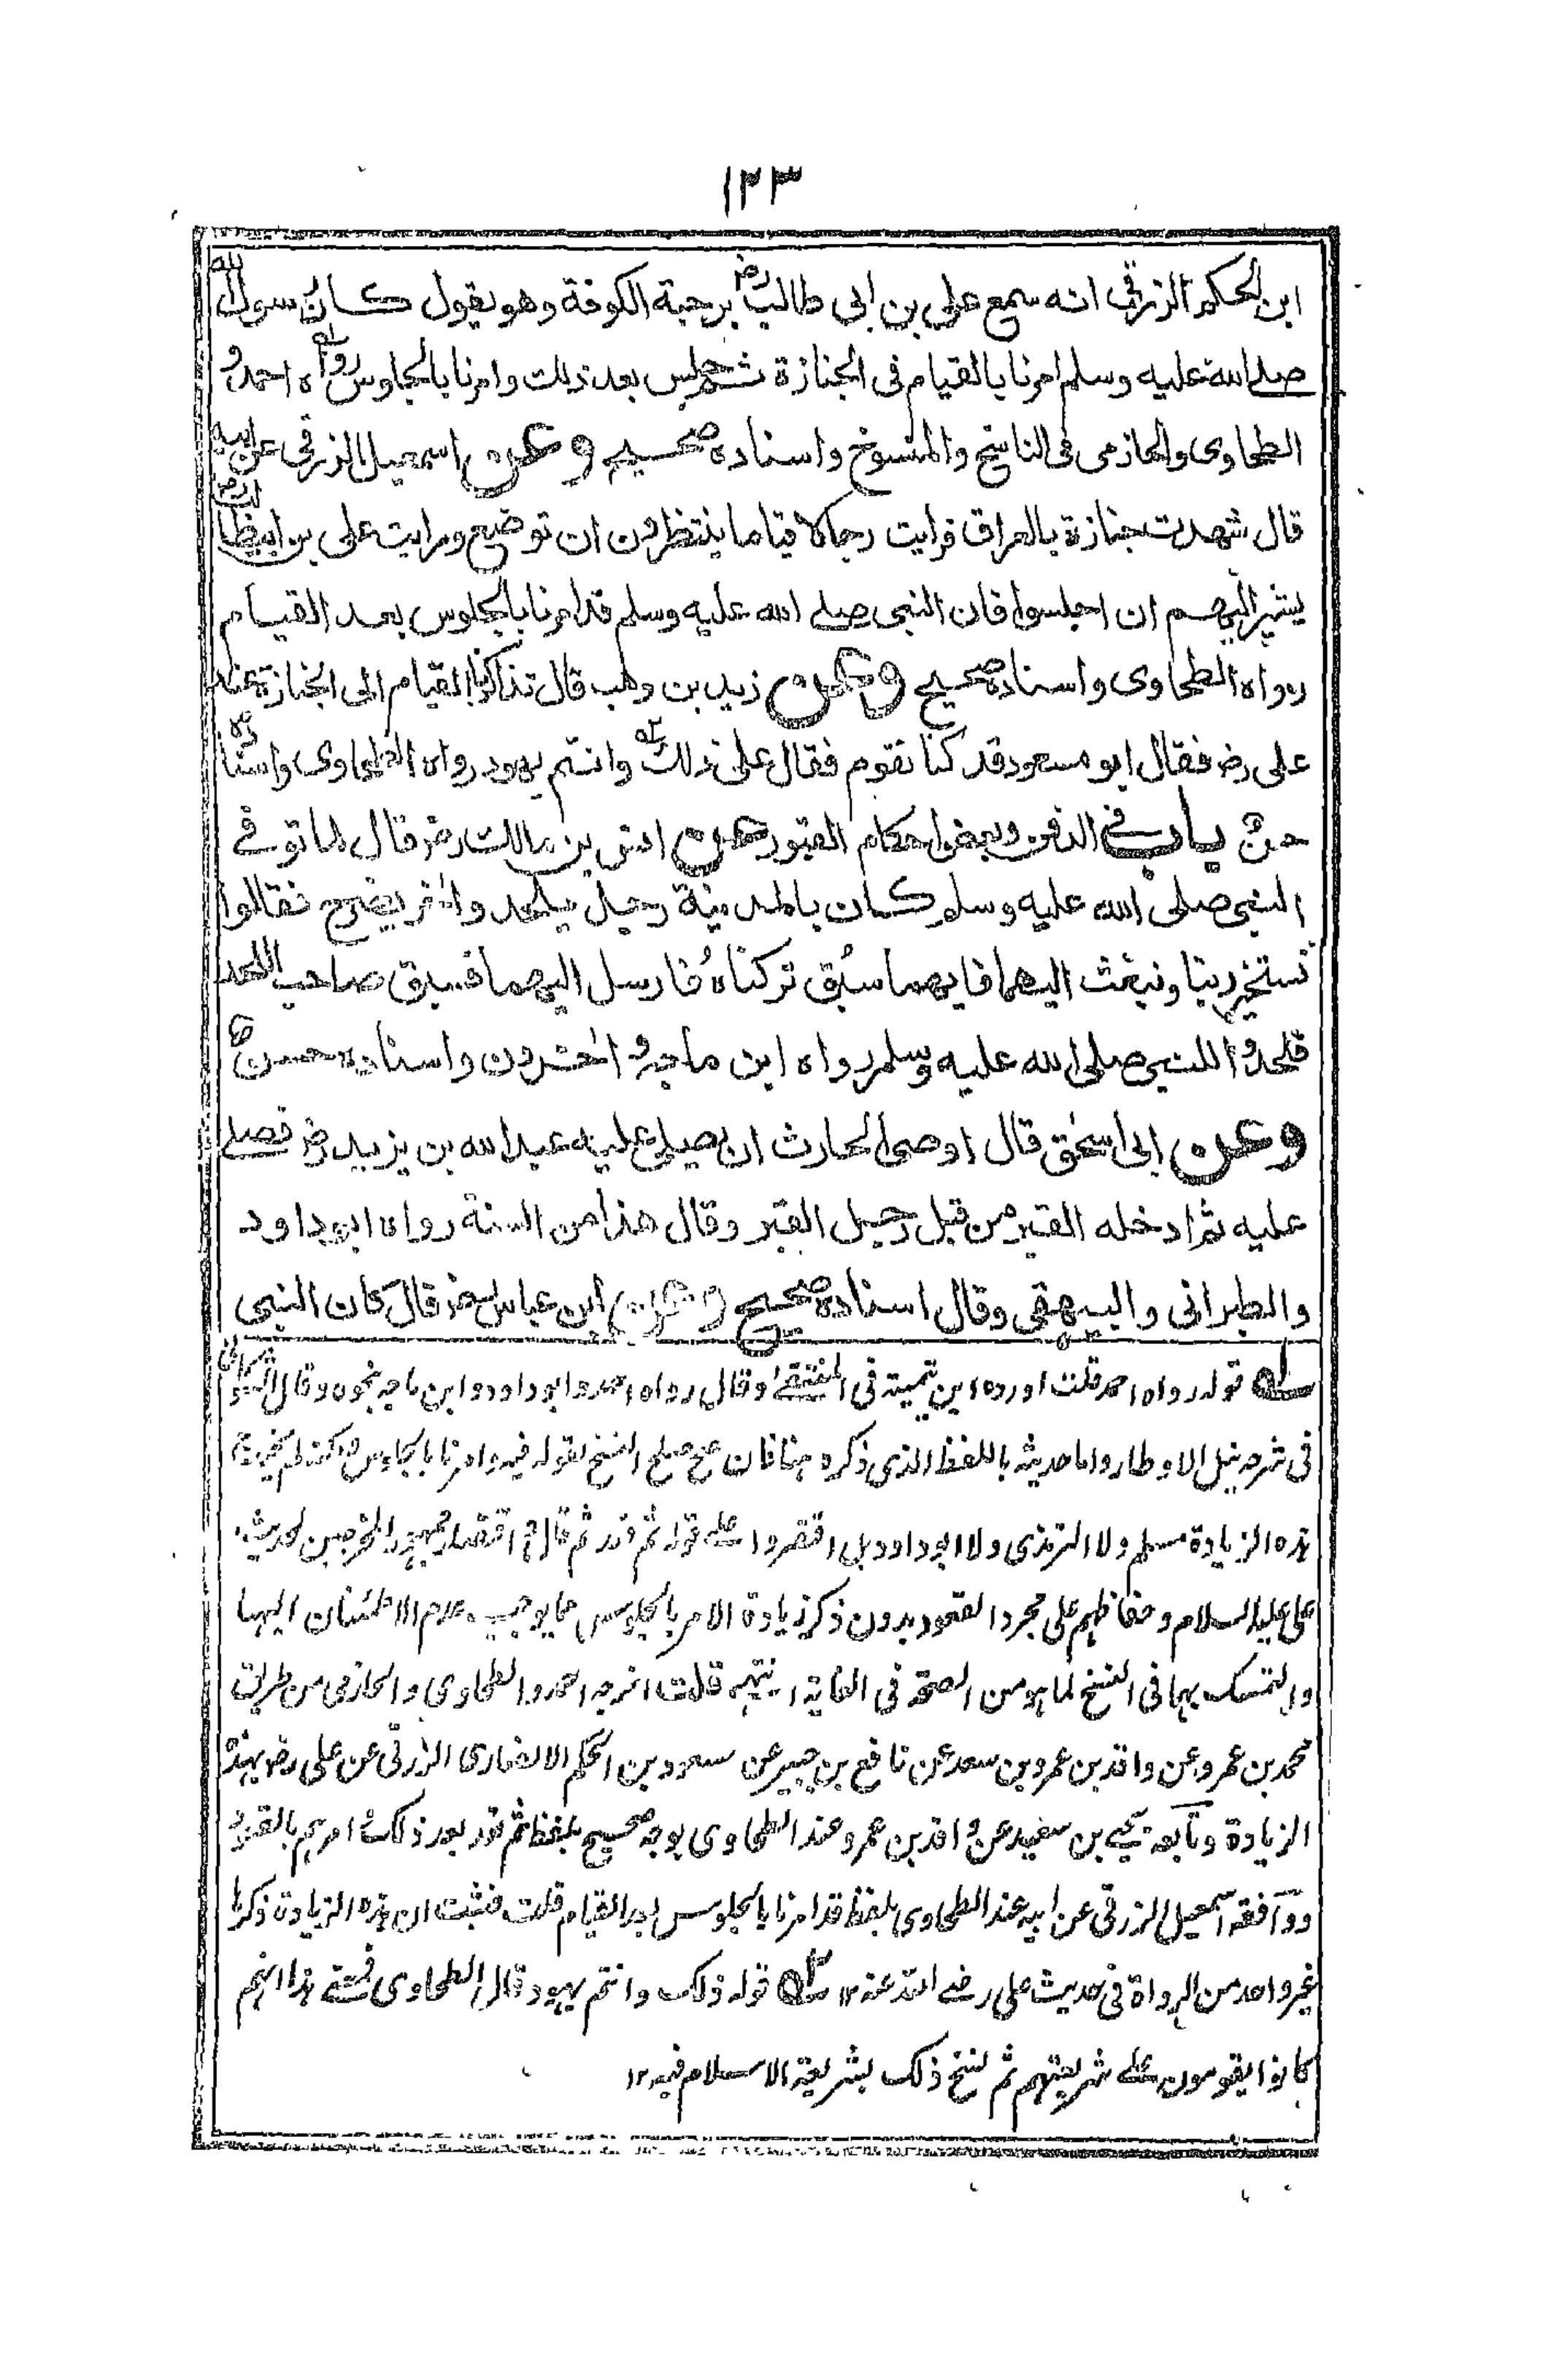 ١٢٣
ابن الحكم الزرقي انه سمع علي بن ابي طالب رض برحبة الكوفة وهو يقول كان رسول الله
صلے الله عليه وسلم امرنا بالقيام فى الجنازة ثم جلس بعد ذلك وامرنا بالجلوس رواه احمد و
الطحاوى والحازمى فى الناسخ والمنسوخ واسناده صحيح وعن اسمعيل الزرقى عن ابيه
قال شهدت جنازة بالعراق فرايت رجالا قياما ينتظرون ان توضع ورايت على بن ابيطالب رض
يشير اليهم ان اجلسوا فان النبى صلے الله عليه وسلم قد امرنا بالجلوس بعد القيام
رواه الطحاوى واسناده صحيح وعن زيد بن وهب قال تذاكرنا القيام الى الجنازة عند
على رض فقال ابو مسعود قد كنا نقوم فقال على ذلك وانتم يهود رواه الطحاوى واسناده
حسن باب فى الدفن وبعض احكام القبور عن انس بن مالك رض قال لما توفے
النبى صلى الله عليه وسلم كان بالمدينة رجل يلحد واٰخر يضرح فقالوا
نستخير ربنا ونبعث اليهما فايهما سُبق تركناهُ فارسل اليهما فسبق صاحب اللحد
فلحدوا للنبى صلى الله عليه وسلم رواه ابن ماجه واٰخرون واسناده حسن
وعن ابى اسحٰق قال اوصى الحارث ان يصلى عليه عبد الله بن يزيد رض فصلے
عليه ثم ادخله القبر من قبل رجل القبر وقال هذا من السنة رواه ابو داود
والطبرانى والبيهقى وقال اسناده صحيح وعن ابن عباس رض قال كان النبى
لـه قوله رواه احمد قلت اورده ابن تيمية فى المنتقے وقال رواه احمد وابو داود وابن ماجه بنحوه وقال الشوكانى
فى شرحه نيل الاوطار واما حديثه باللفظ الذى ذكره هنا فان صح صلح النسخ لقوله فيه وامرنا بالجلوس ولكنه لم يخرج
هذه الزيادة مسلم ولا الترمذى ولا ابو داود بل اقتصروا علے قوله ثم قعد ثم قال اقتصار جمهور المخرجين لحديث
على عليه السلام وحفاظهم على مجرد القعود بدون ذكر زيادة الامر بالجلوس مما يوجب عدم الاطمئنان اليها
والتمسك بها فى النسخ لما هو من الصحة فى الغاية انتهى قلت اخرجه احمد والطحاوى والحازمى من طريق
محمد بن عمرو عن واقد بن عمرو بن سعد عن نافع بن جبير عن مسعود بن الحكم الانصارى الزرقى عن على رض بهذه
الزيادة وتابعه يحيے بن سعيد عن واقد بن عمرو عند الطحاوى بوجه صحيح بلفظ ثم قعد بعد ذلك امرهم بالقعود
ووافقه اسمعيل الزرقى عن ابيه عند الطحاوى بلفظ قد امرنا بالجلوس بعد القيام قلت فثبت ان هذه الزيادة ذكرها
غير واحد من الرواة فى حديث على رضے الله عنه ١٢ ٢ـه قوله ذلك وانتم يهود قال الطحاوى فمعنے هذا انهم
كانوا يقومون علے شريعتهم ثم نسخ ذلك بشريعة الاسلام فيه ١٢